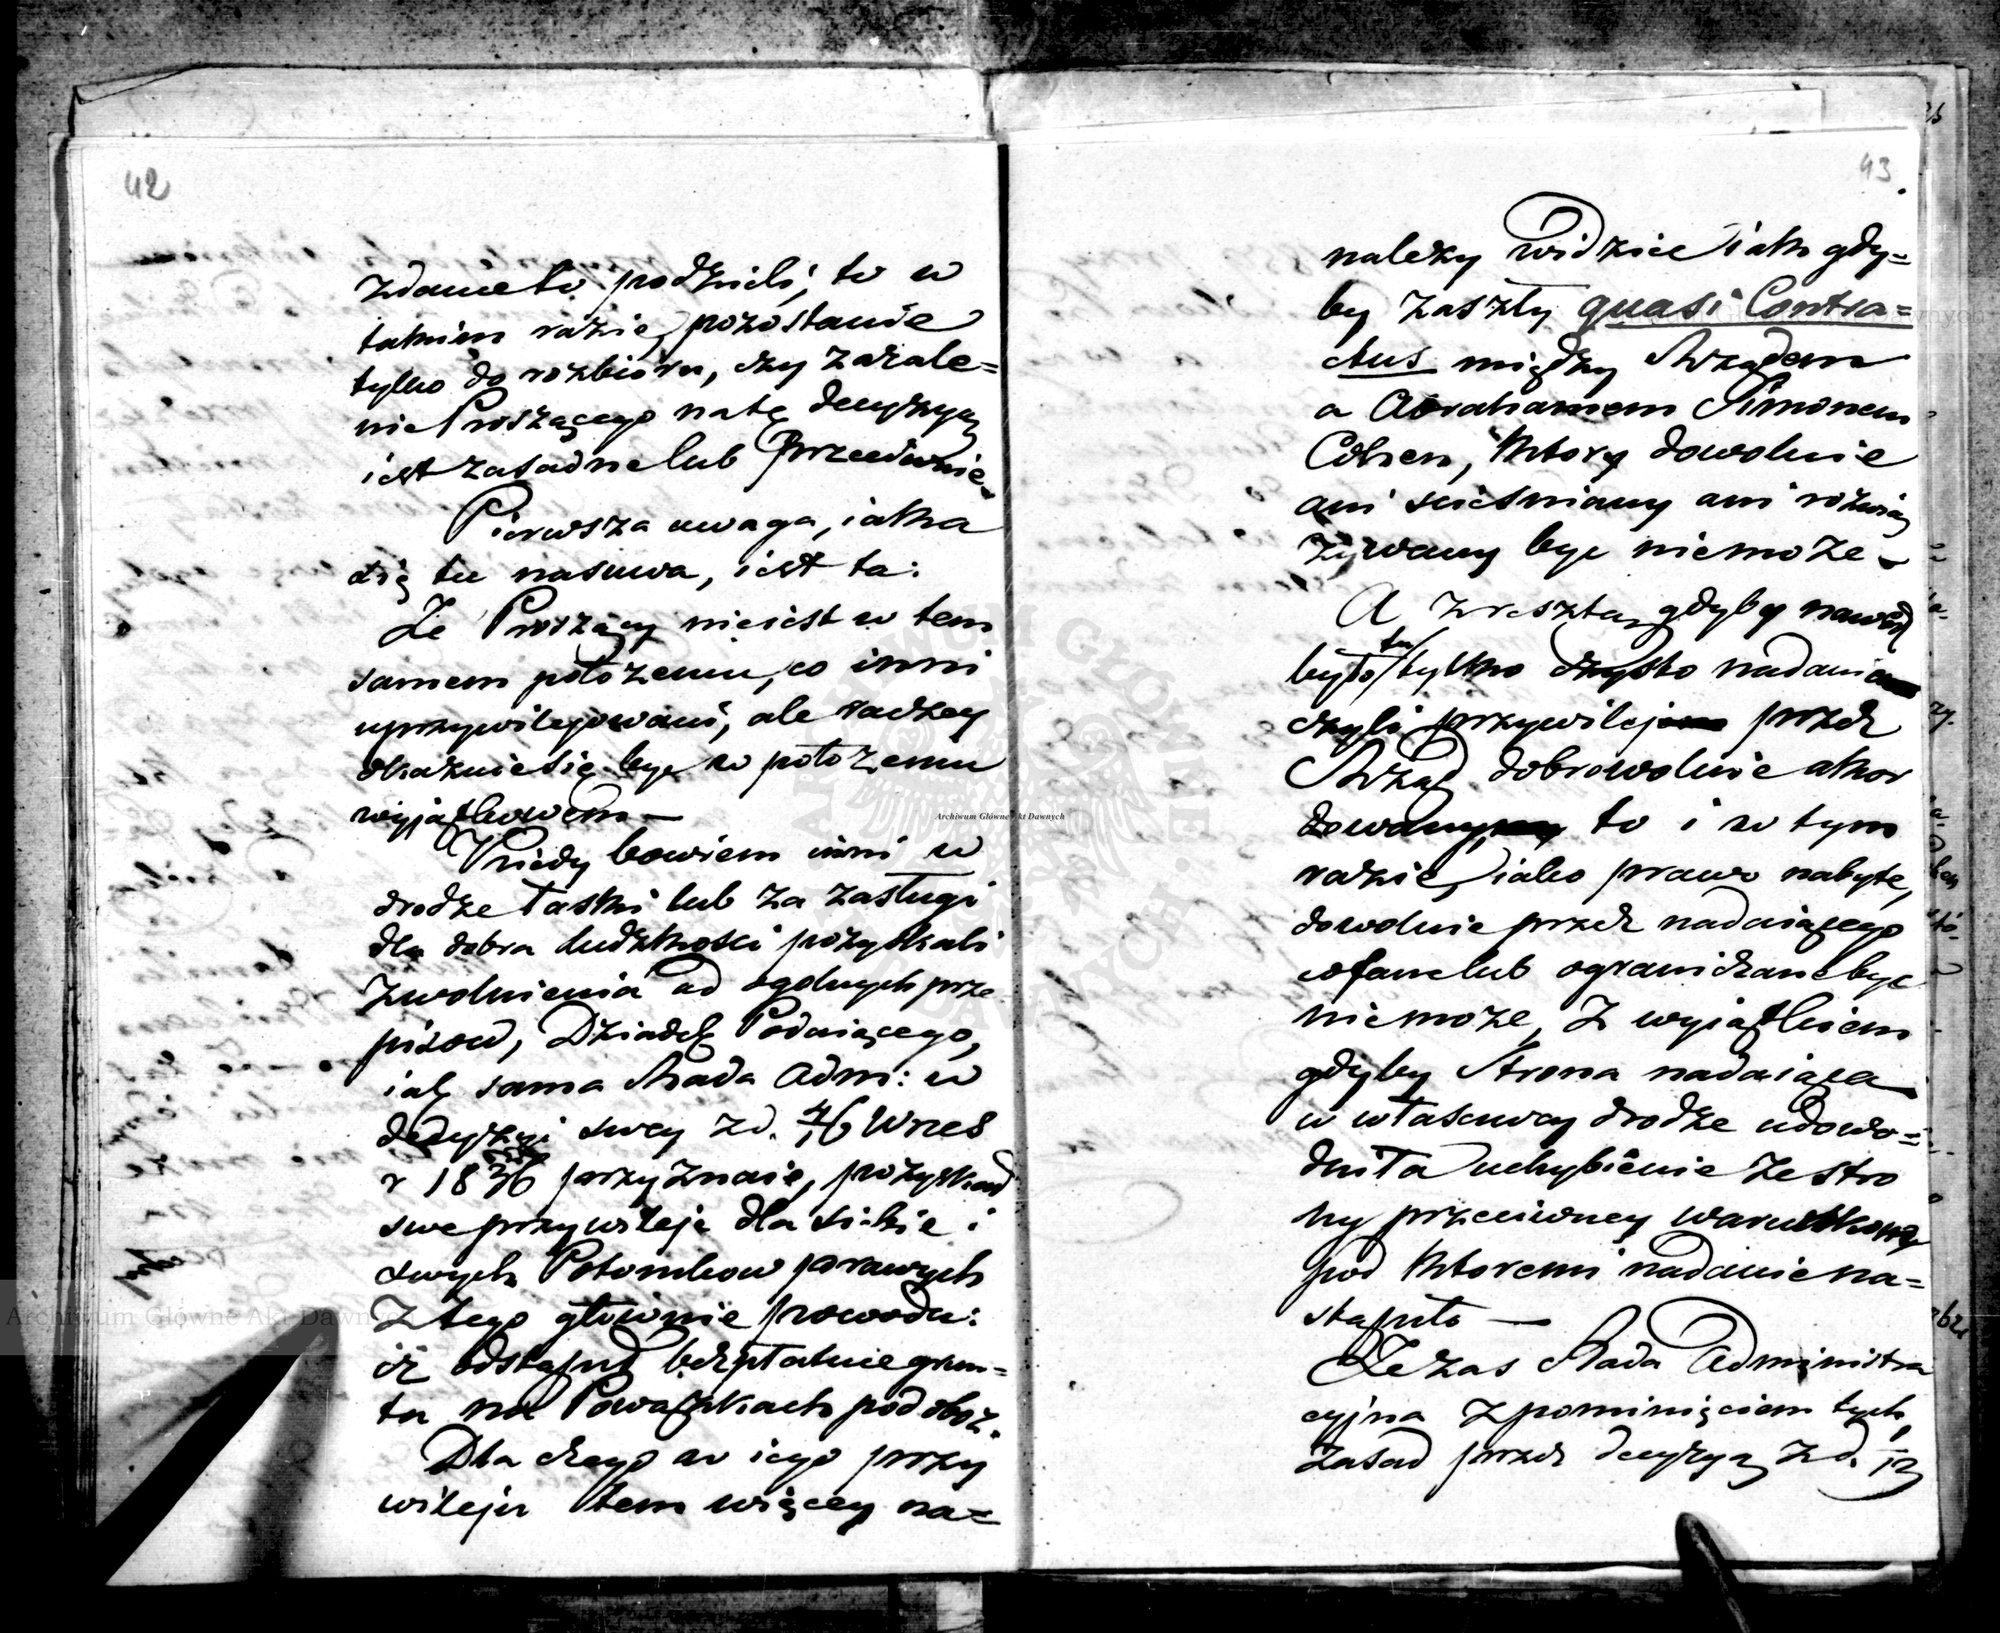 42
zdanie to podzieli, to w
takim razie, pozostanie
tylko do rozbioru, czy zażale=
nie Proszącego na tę decyzyą
iest zasadne lub przeciwnie.
Pierwsza uwaga, iaka
się tu nasuwa, iest ta:
Że Proszący nieiest w tem
samem położeniu, co inni
uprzywilejowani, ale raczey
okazuie się być w położeniu
wyjątkowem —
Kiedy bowiem inni w
drodze łaski lub za zasługi
dla dobra ludzkości pozyskali
zwolnienia od ogolnych prze
pisow, Dziadek Podaiącego,
iak sama Rada Adm: w
decyzyi swey z d. 4/16 Wrześ
r 1836 przyznaie, pozyskał
swe przywileje dla siebie i
swych Potomkow prawych
z tego głownie powodu:
iż odstąpił bezpłatnie grun=
ta na Powązkach pod oboz.
Dla czego w iego przy
wileju tem więcey na=
43
należy widzieć iak gdy=
by zaszły quasi Contra=
ctus między Rządem
a Abrahamem Simonem
Cohen, ktory dowolnie
ani scieśniany ani rozwią
zywany być niemoże —
A zresztą, gdyby nawet
było tu tylko czysto nadanie
czyli przywilej przez
Rząd dobrowolnie akor
dowany, to i w tym
razie, iako prawo nabyte,
dowolnie przez nadaiącego
cofane lub ograniczane być
niemoże, z wyiątkiem
gdyby Strona nadaiąca
w własciwey drodze udowo=
dniła uchybienie ze stro
ny przeciwney warunkowi
pod ktoremi nadanie na=
stąpiło —
Że zas Rada Administra
cyjna z pominięciem tych
zasad przez decyzyą z d.
Archiwum Główne Akt Dawnych
Archiwum Główne Akt Dawnych